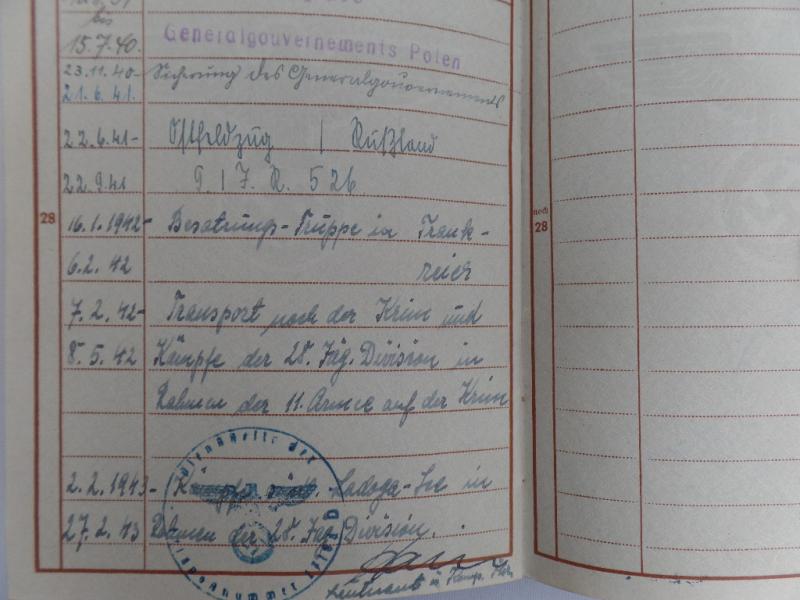 bis
15.7.40. Generalgouvernements Polen
23.11.40- Sicherung des Generalgouvernements
21.6.41.
22.6.41- Ostfeldzug / Rußland
22.9.41 9 / J. R. 526
28 16.1.1942- Besatzungs-Truppe in Frank-
noch 28
6.2.42 reich
7.2.42- Transport nach der Krim und
8.5.42 Kämpfe der 28. Jäg. Division im
Rahmen der 11. Armee auf der Krim
2.2.1943- Kämpfe südl. Ladoga-See im
27.2.43 Rahmen der 28. Jäg. Division.
Leutnant u. Komp.